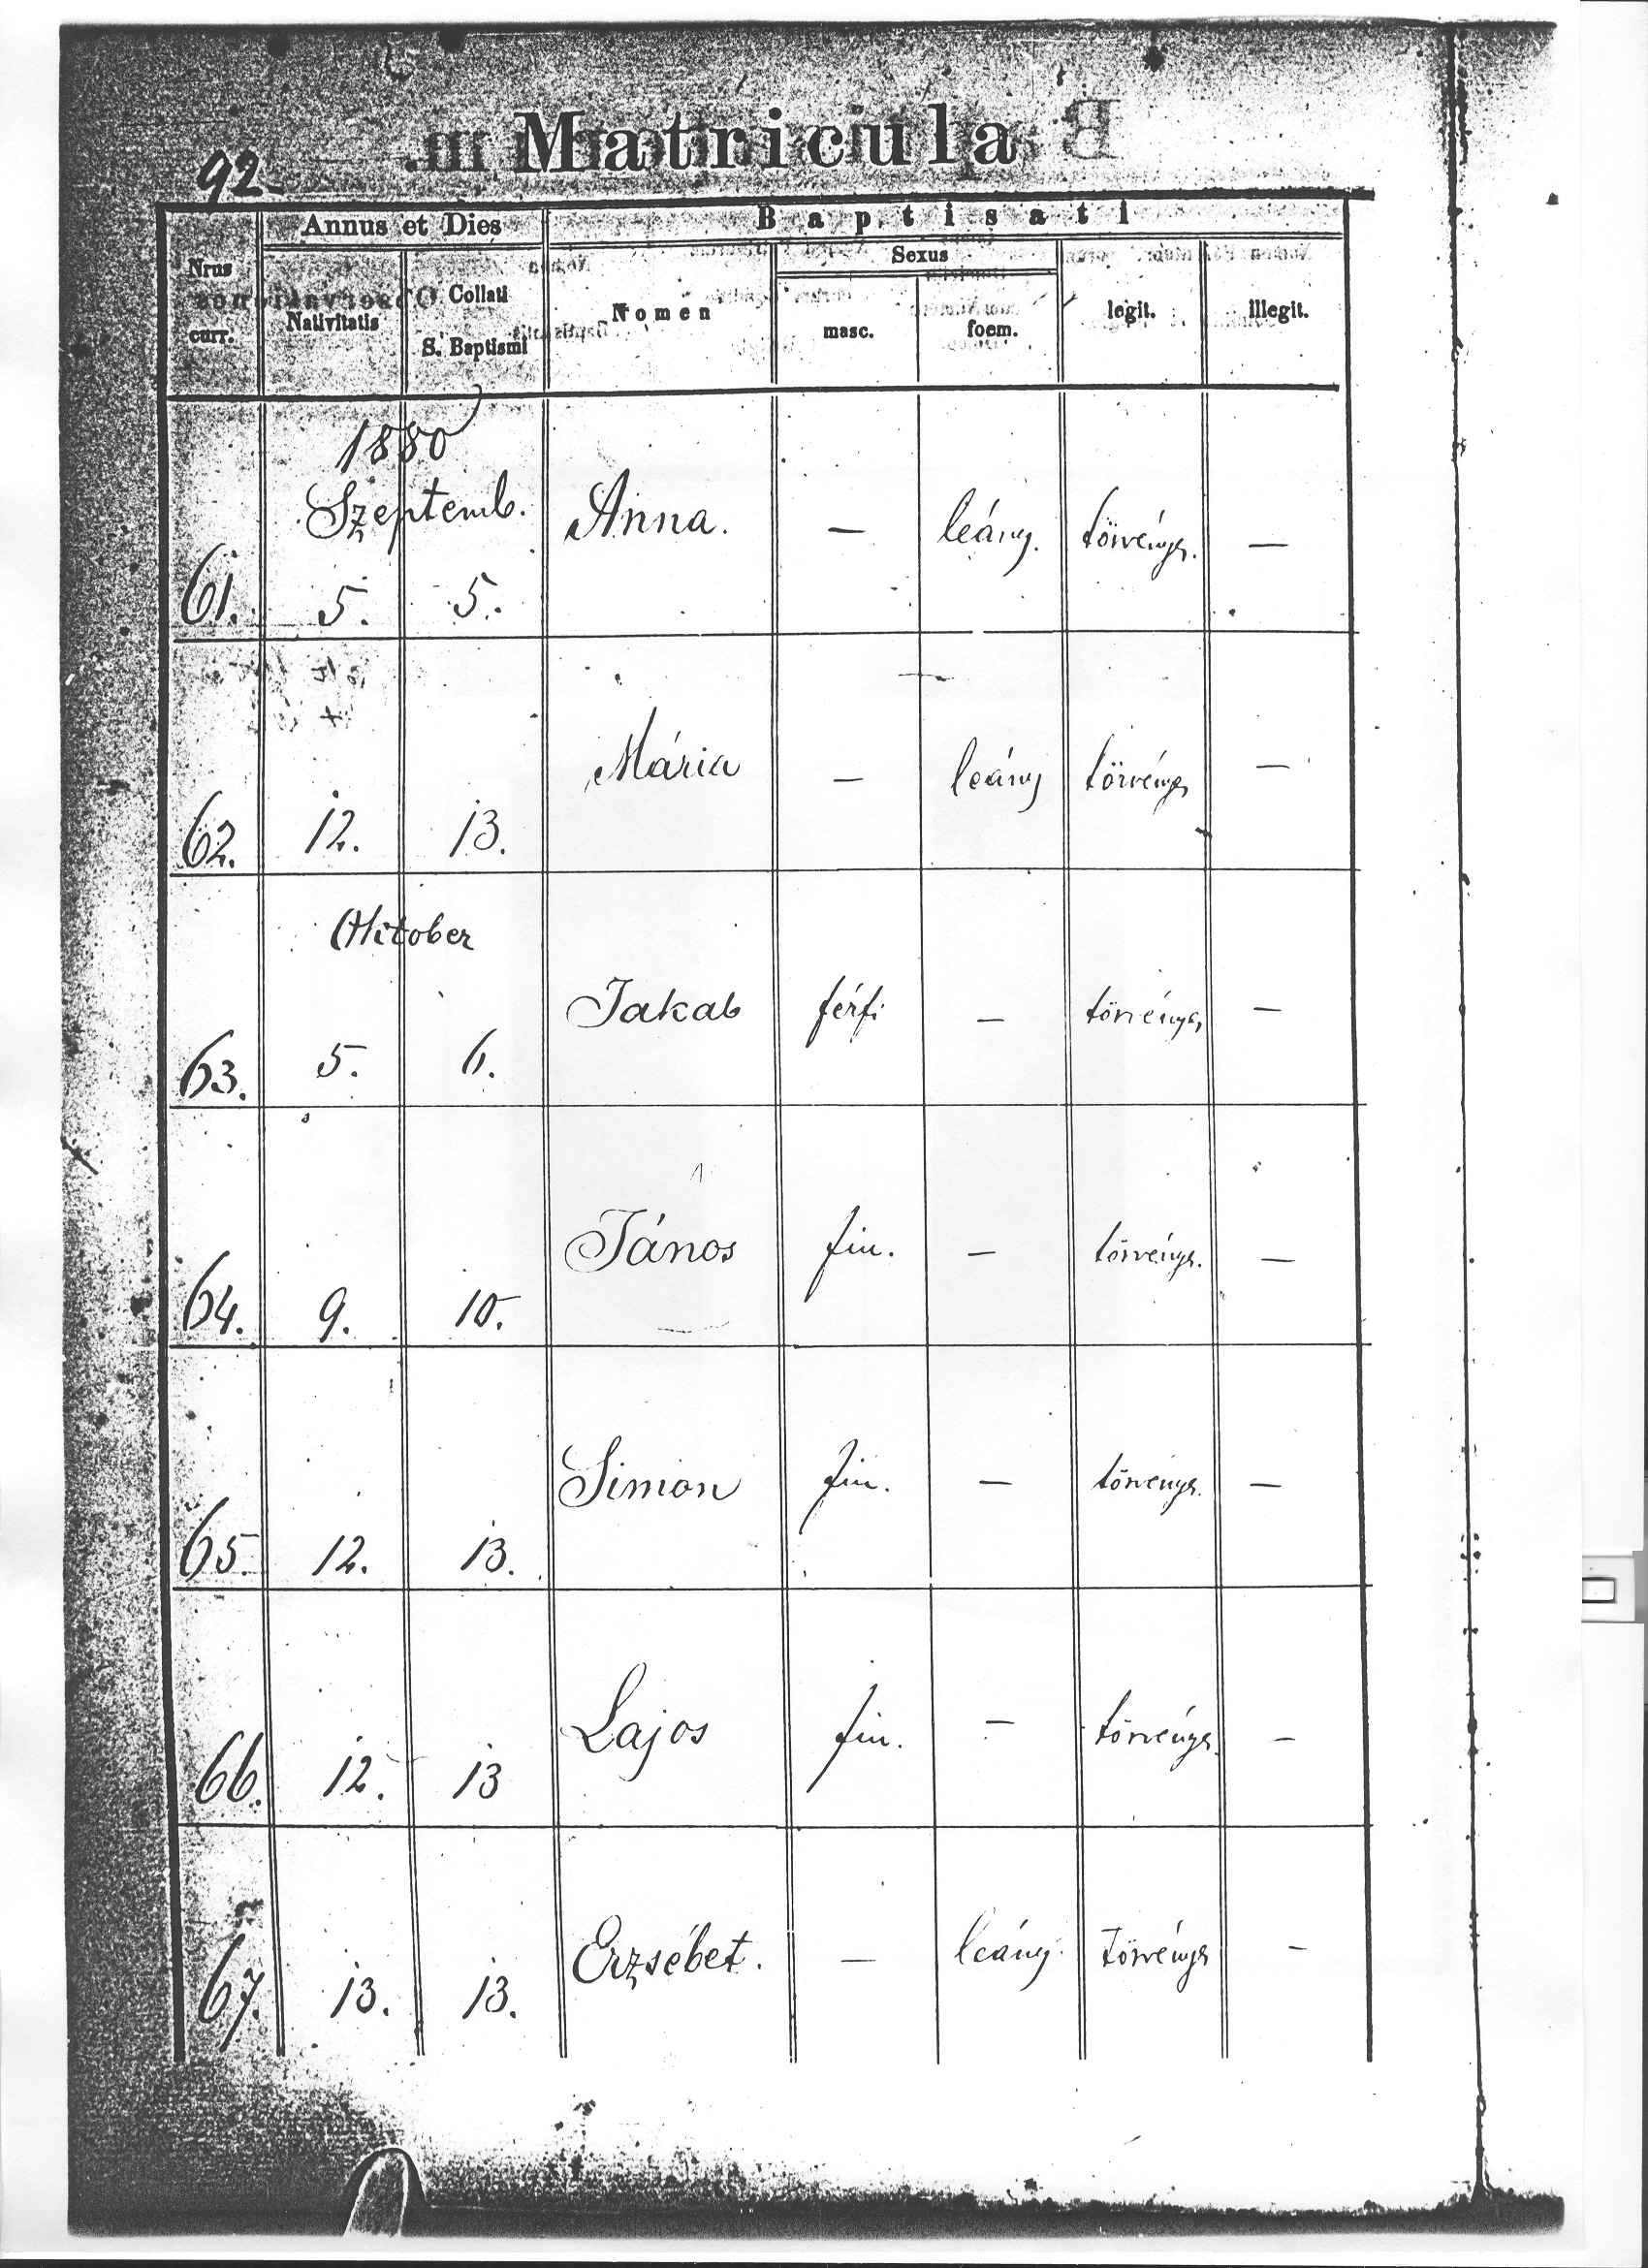 92
Matricula
Nrus curr. Annus et Dies Baptisati
Nativitatis Collati S. Baptismi Nomen Sexus legit. illegit.
masc. foem.
1880
Szeptemb.
61. 5. 5. Anna. — leány. törvénys. —
62. 12. 13. Mária — leány törvénys —
Oktober
63. 5. 6. Jakab férfi — törvénys —
64. 9. 10. János fiu. — törvénys. —
65 12. 13. Simon fiu. — törvénys. —
66. 12. 13 Lajos fiu. — törvénys. —
67. 13. 13. Erzsébet. — leány. Törvénys —